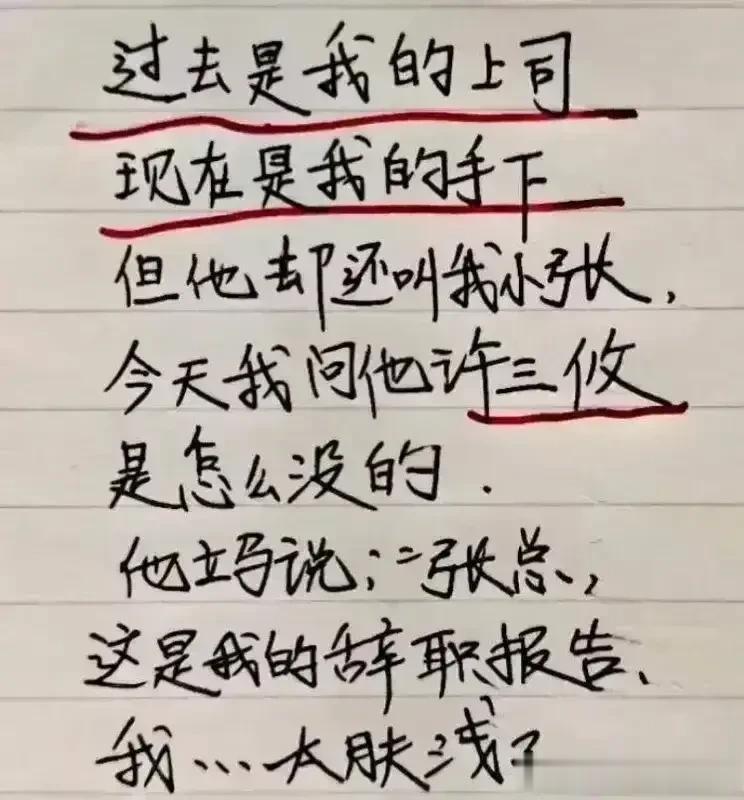 过去是我的上司
现在是我的手下
但他却还叫我小张,
今天我问他许三攸
是怎么没的.
他立马说:"张总,
这是我的辞职报告、
我…太肤浅了